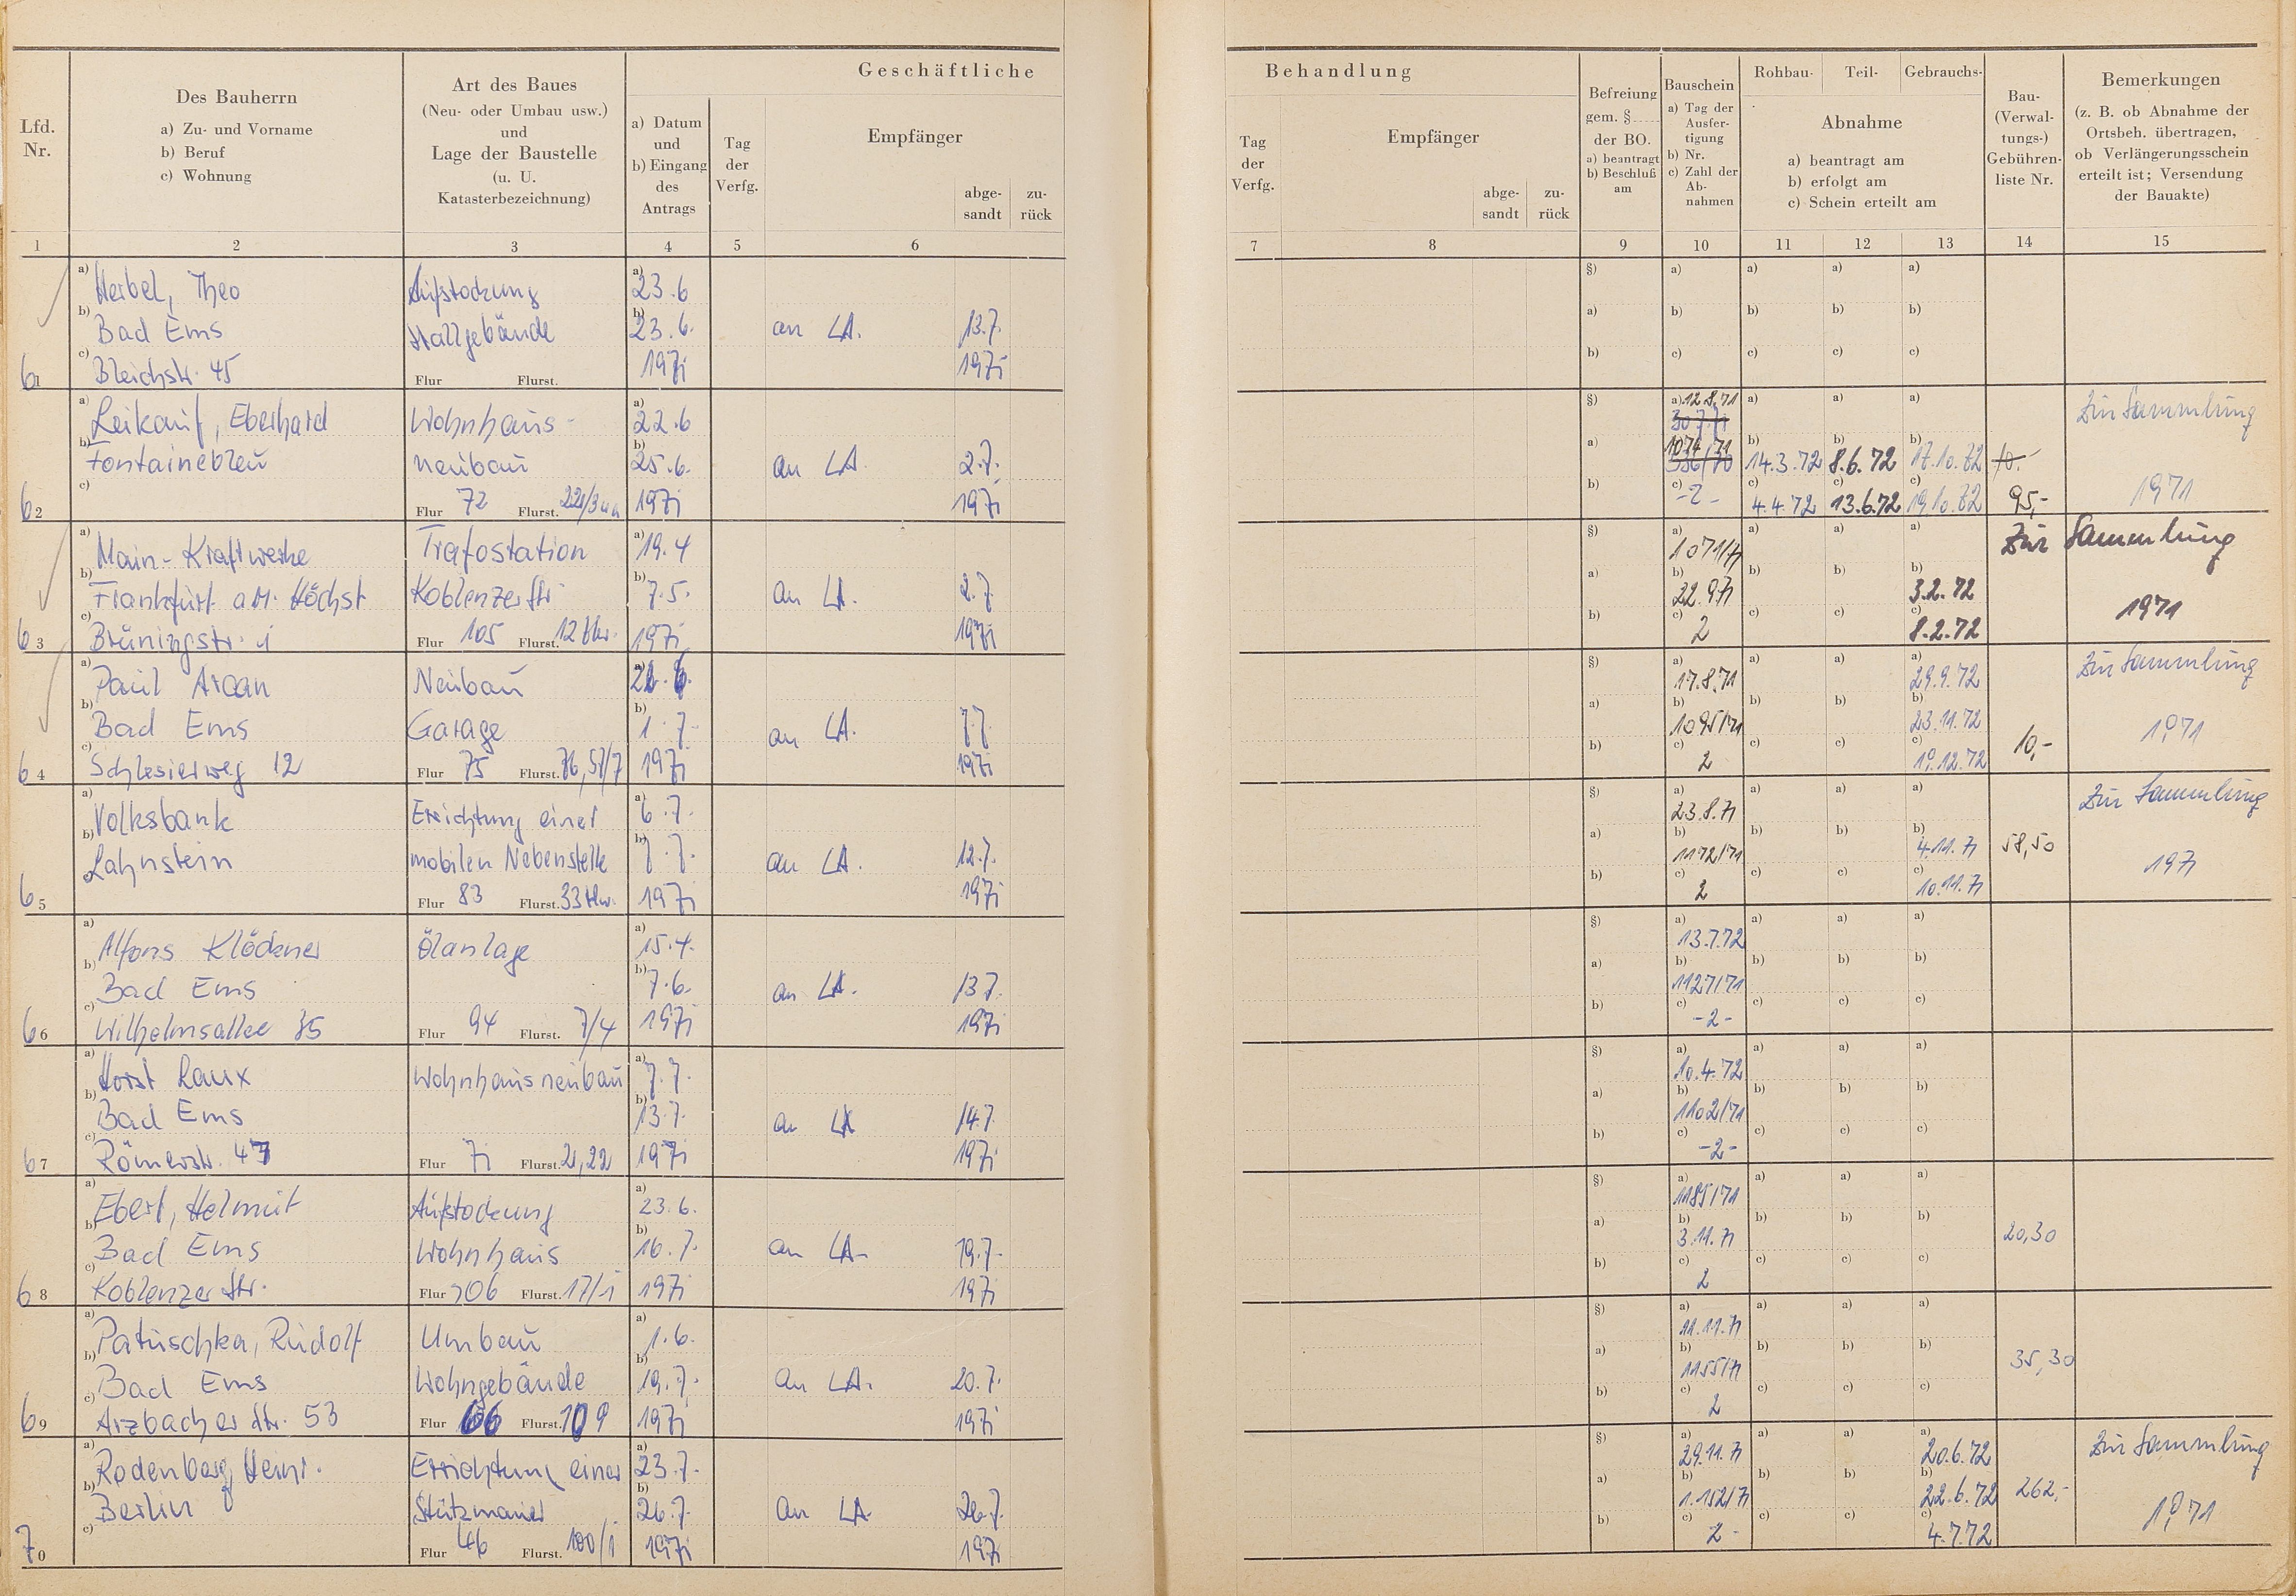 Geschäftliche
Behandlung
Lfd. Nr.
Des Bauherrn
a) Zu- und Vorname
b) Beruf
c) Wohnung
Art des Baues
(Neu- oder Umbau usw.)
und
Lage der Baustelle
(u. U.
Katasterbezeichnung)
a) Datum
und
b) Eingang
des
Antrags
Tag
der
Verfg.
Empfänger
abge-
sandt
zu-
rück
Tag
der
Verfg.
Empfänger
abge-
sandt
zu-
rück
Befreiung
gem. §
der BO.
a) beantragt
b) Beschluß
am
Bauschein
a) Tag der
Ausfer-
tigung
b) Nr.
c) Zahl der
Ab-
nahmen
Rohbau- Teil- Gebrauchs-
Abnahme
a) beantragt am
b) erfolgt am
c) Schein erteilt am
Bau-
(Verwal-
tungs-)
Gebühren-
liste Nr.
Bemerkungen
(z. B. ob Abnahme der
Ortsbeh. übertragen,
ob Verlängerungsschein
erteilt ist; Versendung
der Bauakte)
1 2 3 4 5 6 7 8 9 10 11 12 13 14 15
a) Herbel, Theo Aufstockung a) 23.6 §) a) a) a) a)
b) Bad Ems Stallgebäude b) 23.6. an LA. 13.7. a) b) b) b) b)
61 c) Bleichstr. 45 Flur Flurst. 1971 1971 b) c) c) c) c)
a) Leikauf, Eberhard Wohnhaus- a) 22.6 §) a) 12.8.71 a) a) a) Zur Sammlung
b) Fontainebleu neubau b) 25.6. an LA 2.7. a) 1074/71 b) 14.3.72 b) 8.6.72 b) 17.10.72 10.-
62 c) Flur 72 Flurst. 1971 1971 b) c) -2- c) 4.4.72 c) 13.6.72 c) 19.10.72 95,- 1971
a) Main-Kraftwerke Trafostation a) 19.4 §) a) 1071/71 a) a) a) Zur Sammlung
b) Frankfurt a.M. Höchst Koblenzer Str. b) 7.5. an LA. 2.7. a) b) 22.9.71 b) b) b) 3.2.72
63 c) Brüningstr. 1 Flur 105 Flurst. 12 tlw. 1971 1971 b) c) 2 c) c) c) 8.2.72 1971
a) Paul Arcan Neubau a) §) a) 17.8.71 a) a) a) 29.9.72 Zur Sammlung
b) Bad Ems Garage b) 1.7. an LA. 7.7. a) b) 1095/71 b) b) b) 23.11.72
64 c) Schlesierweg 12 Flur 75 Flurst. 76, 57/7 1971 1971 b) c) 2 c) c) c) 19.12.72 10,- 1971
a) Volksbank Errichtung einer a) 6.7. §) a) 23.8.71 a) a) a) Zur Sammlung
b) Lahnstein mobilen Nebenstelle b) 7.7. an LA. 12.7. a) b) 1172/71 b) b) b) 4.11.71 58,50
65 Flur 83 Flurst. 33 tlw. 1971 1971 b) c) 2 c) c) c) 10.11.71 1971
a) Alfons Klöckner Ölanlage a) 15.4. §) a) 13.7.72 a) a) a)
b) Bad Ems b) 7.6. an LA. 13.7. a) b) 1127/71 b) b) b)
66 c) Wilhelmsallee 35 Flur 94 Flurst. 7/4 1971 1971 b) c) -2- c) c) c)
a) Horst Laux Wohnhausneubau a) 7.7. §) a) 10.4.72 a) a) a)
b) Bad Ems b) 13.7. an LA 14.7. a) b) 1102/71 b) b) b)
67 c) Römerstr. 47 Flur 71 Flurst. 21, 22 1971 1971 b) c) -2- c) c) c)
a) Ebert, Helmut Aufstockung a) 23.6. §) a) 1185/71 a) a) a)
b) Bad Ems Wohnhaus b) 16.7. an LA 19.7. a) b) 3.11.71 b) b) b) 20,30
68 c) Koblenzer Str. Flur 106 Flurst. 17/1 1971 1971 b) c) 2 c) c) c)
a) Patuschka, Rudolf Umbau a) 1.6. §) a) 11.11.71 a) a) a)
b) Bad Ems Wohngebäude b) 19.7. an LA. 20.7. a) b) 1155/71 b) b) b) 35,30
69 c) Arzbacher Str. 53 Flur 66 Flurst. 109 1971 1971 b) c) 2 c) c) c)
a) Rodenberg, Heinr. Errichtung einer a) 23.7. §) a) 29.11.71 a) a) a) 20.6.72 Zur Sammlung
b) Berlin Stützmauer b) 26.7. an LA. 26.7. a) b) 1.152/71 b) b) b) 22.6.72 262,-
70 c) Flur 46 Flurst. 100/1 1971 1971 b) c) 2- c) c) c) 4.7.72 1971